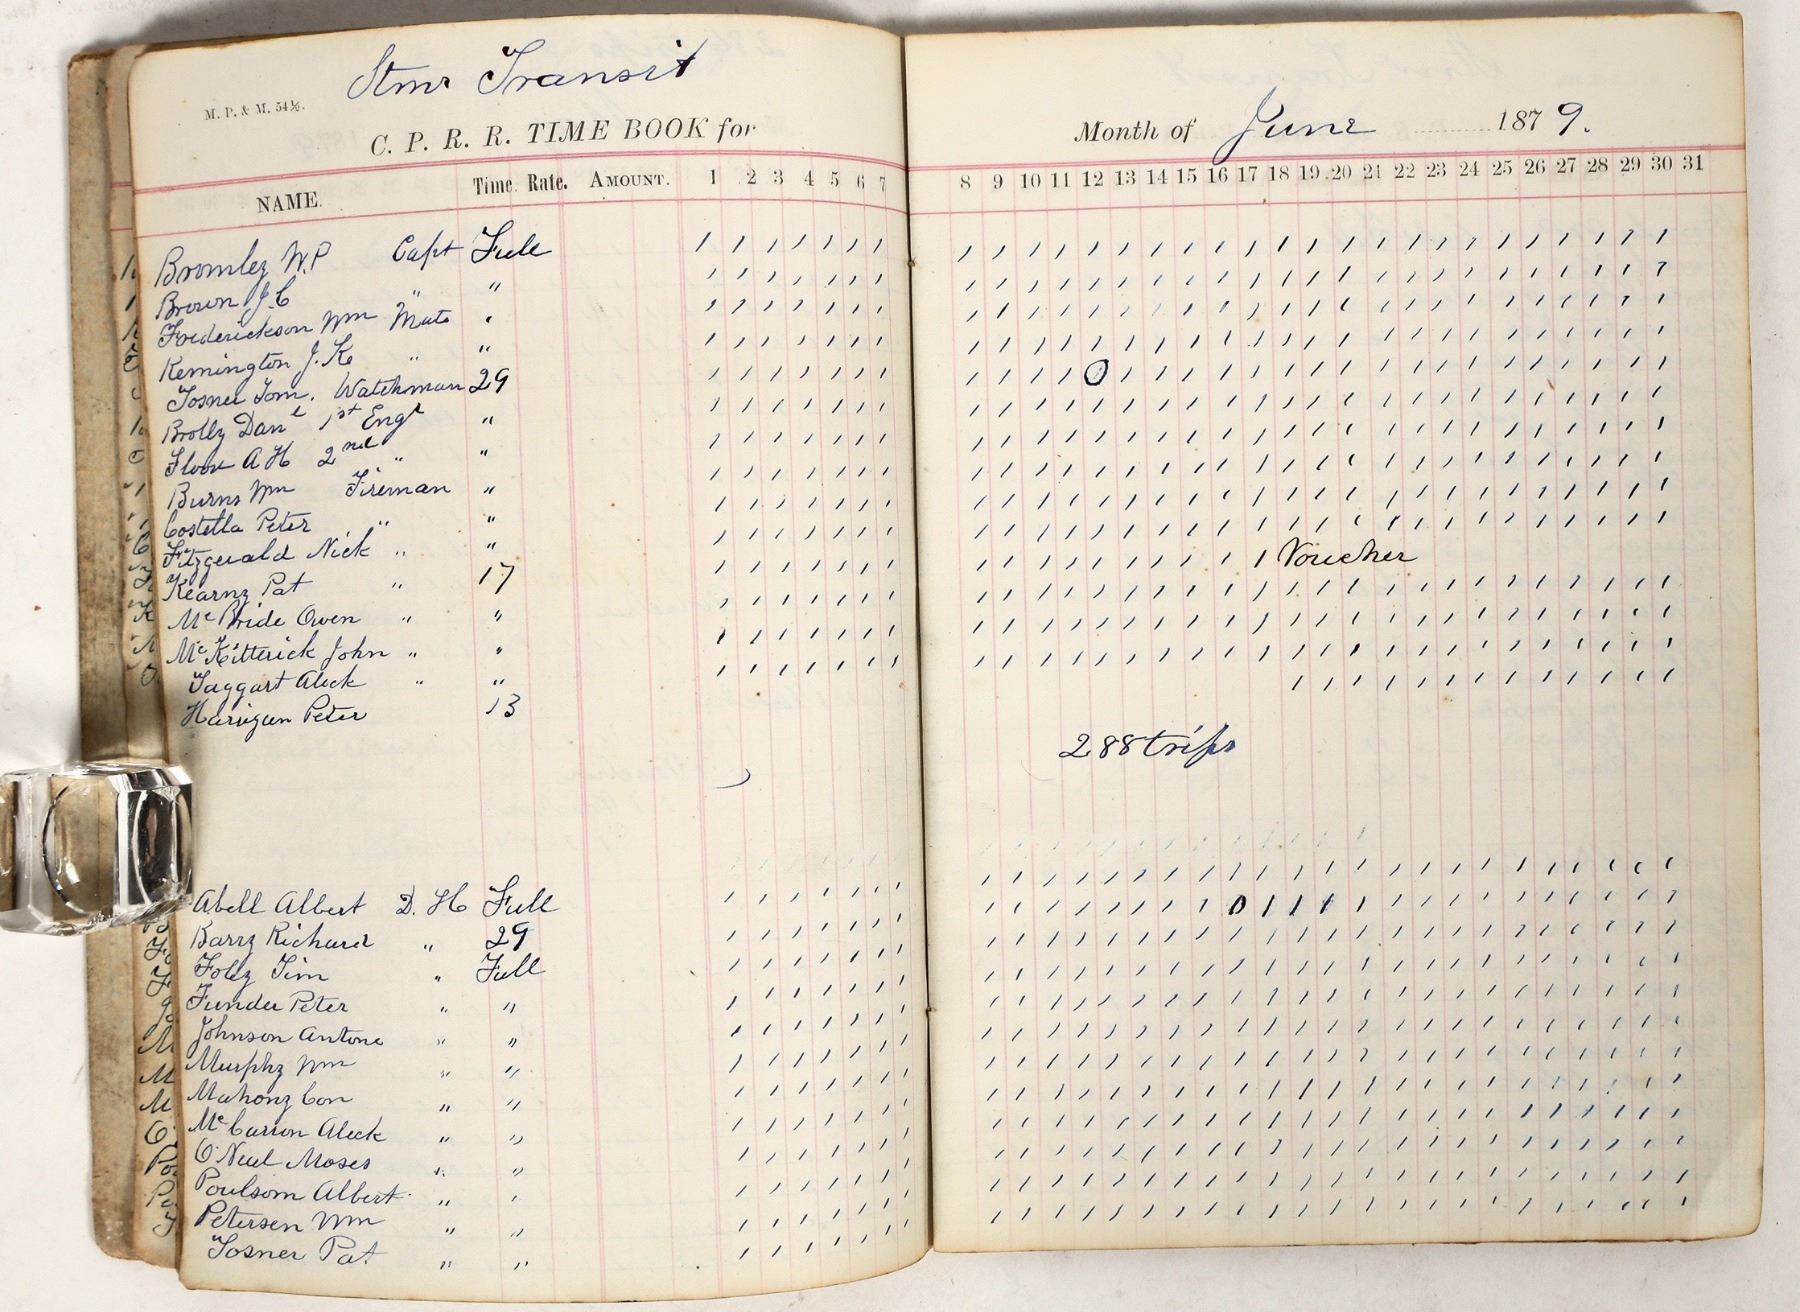 Stmr Transit
M. P. & M. 54½.
C. P. R. R. TIME BOOK for
Month of June 1879.
NAME. Time. Rate. AMOUNT. 1 2 3 4 5 6 7 8 9 10 11 12 13 14 15 16 17 18 19 20 21 22 23 24 25 26 27 28 29 30 31
Bromley W.P Capt Full
Brown J.C " "
Frederickson Wm Mate "
Remington J.K " "
Tosner Tom. Watchman 29
Brolly Danl 1st Engr "
Floor A H 2nd " "
Burns Wm Fireman "
Costella Peter " "
Fitzgerald Nick " "
Kearny Pat " 17 Voucher
McBride Owen " "
McKitterick John " "
Taggart Aleck " "
Harrigan Peter 13
288 trips
Abell Albert D. H Full
Barry Richard " 29
Foley Tim " Full
Funder Peter " "
Johnson Antone " "
Murphy Wm " "
Mahony Con " "
McCarron Aleck " "
O'Neal Moses " "
Poulsom Albert " "
Petersen Wm " "
Tosner Pat " "